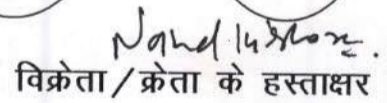 Nand Kishore.
विक्रेता / क्रेता के हस्ताक्षर